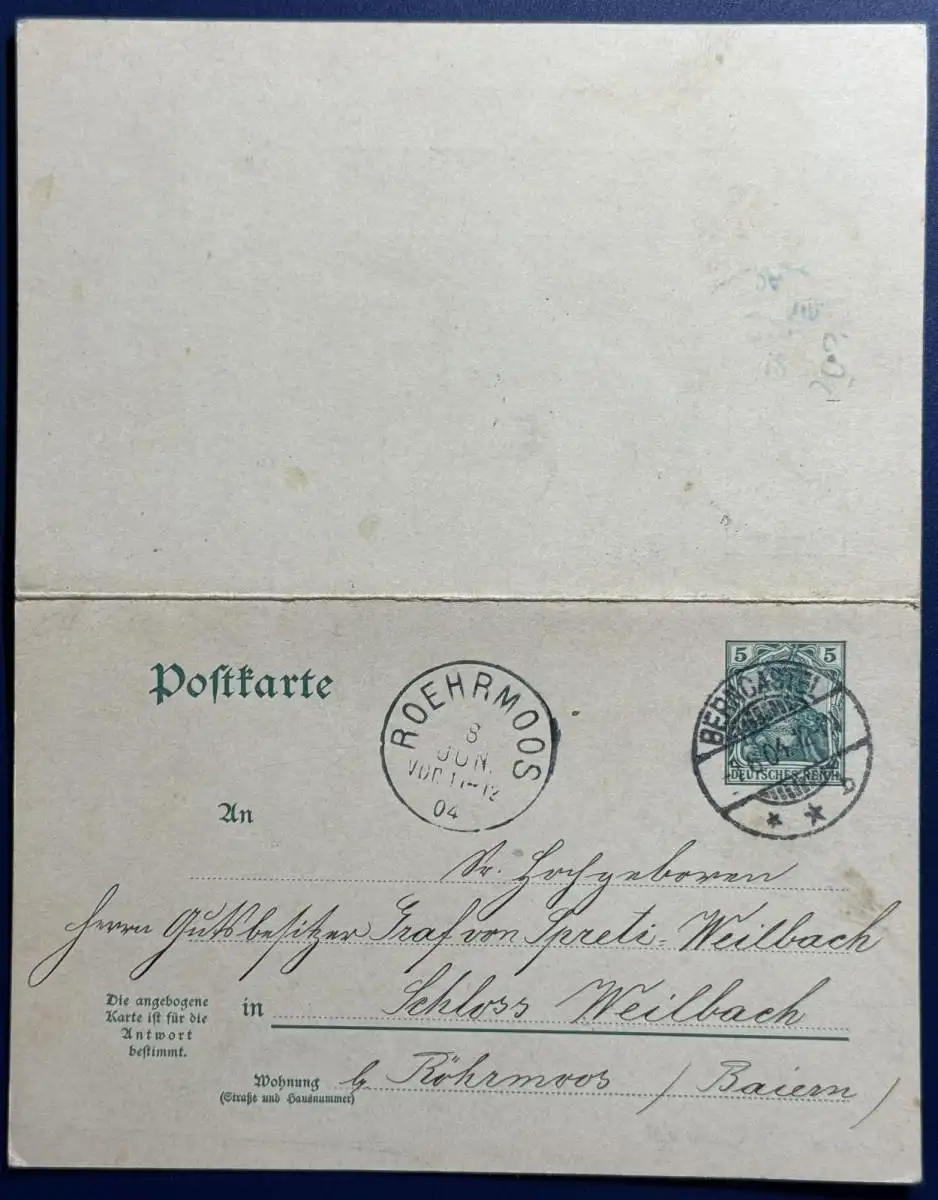 Postkarte
ROEHRMOOS
8
JUN.
VOR. 11-12
04
5 5
BERNCASTEL
.6.04.
DEUTSCHES REICH
An
Sr. Hochgeboren
Herrn Gutsbesitzer Graf von Spreti-Weilbach
Die angebogene
Karte ist für die
Antwort
bestimmt.
in Schloss Weilbach
Wohnung
(Straße und Hausnummer)
b Röhrmoos / Baiern /